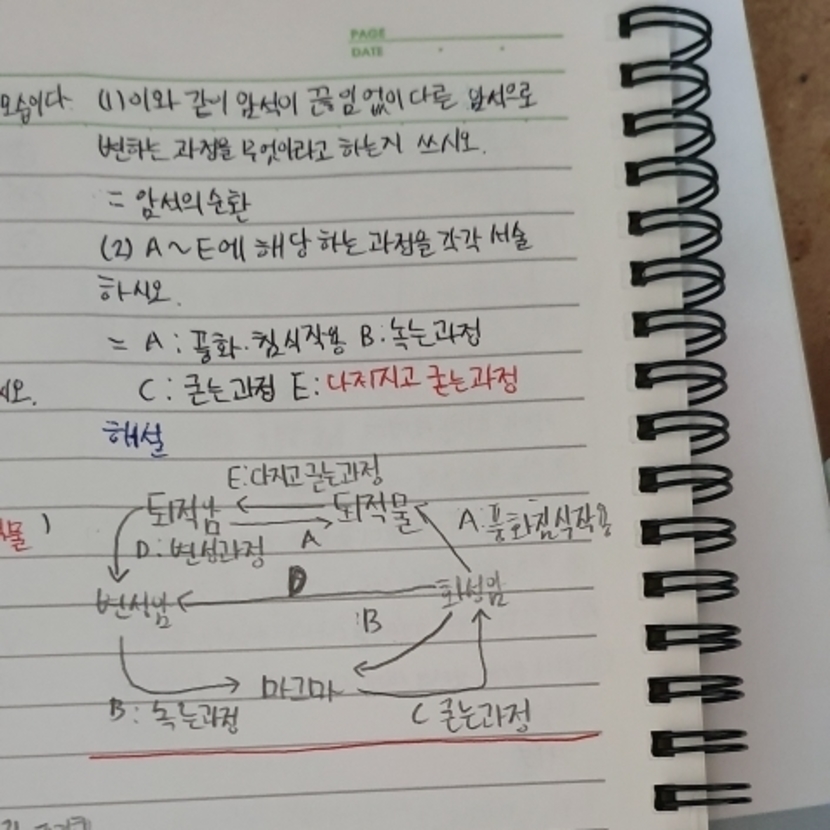 PAGE
DATE
모습이다.
(1)이와 같이 암석이 끊임없이 다른 암석으로
변하는 과정을 무엇이라고 하는지 쓰시오.
= 암석의 순환
(2) A~E에 해당 하는 과정을 각각 서술
하시오.
= A : 풍화·침식작용 B: 녹는과정
시오.
C : 굳는과정 E: 다져지고 굳는과정
해설
E:다지고 굳는과정
퇴적암
퇴적물
A:풍화침식작용
물 )
D: 변성과정
A
D
변성암
화성암
:B
마그마
B : 녹는과정
C 굳는과정